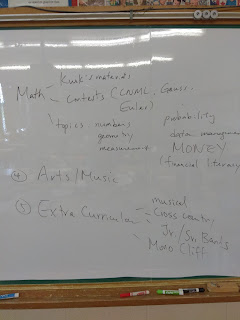 Kirk's materials
Math - contests (CNML, Gauss,
Euler)
topics numbers probability
geometry data management
measurement MONEY
(financial literacy
④ Arts/Music
⑤ Extra Curricular - musical
Cross country
Jr./Sr. Bands
Mono Cliff